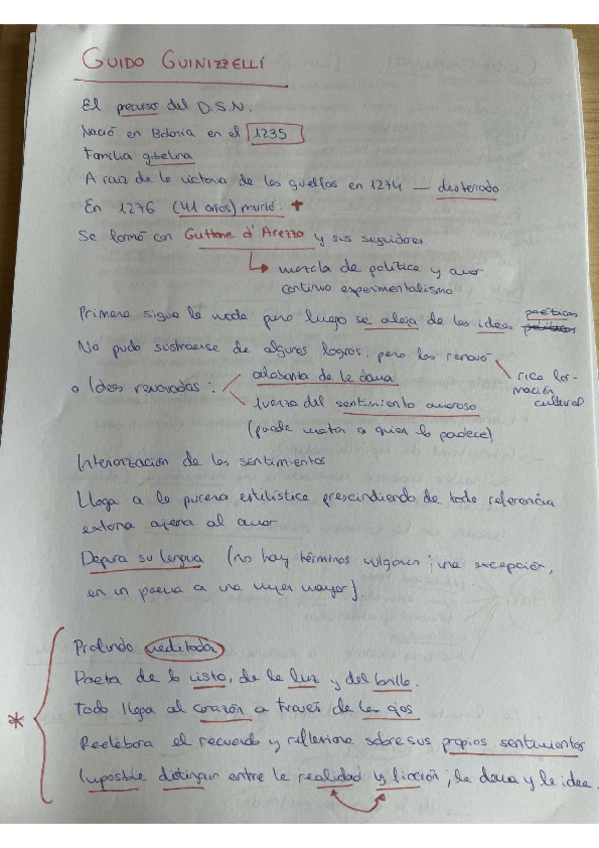 GUIDO GUINIZZELLI
El precurso del D.S.N.
Nació en Bolonia en el 1235
Familia gibelina
A raiz de la victoria de los güelfos en 1274 — desterrado
En 1276 (41 años) murió. ✝
Se formó con Guittone d'Arezzo y sus seguidores
↳ mezcla de política y amor
continuo experimentalismo
Primero sigue la moda pero luego se aleja de las ideas poéticas
No pudo sustraerse de algunos logros, pero los renovó
rica for-
mación
cultural
o Ideas renovadas:
alabanza de la dama
fuerza del sentimiento amoroso
(puede matar a quien lo padece)
Interiorización de los sentimientos
Llega a la pureza estilística prescindiendo de toda referencia
externa ajena al amor
Depura su lengua (no hay términos vulgares; una excepción,
en un poema a una mujer mayor)
* Profundo meditador
Poeta de lo visto, de la luz y del brillo.
Todo llega al corazón a través de los ojos
Reelabora el recuerdo y reflexiona sobre sus propios sentimientos
Imposible distinguir entre la realidad y ficción; la dama y la idea.